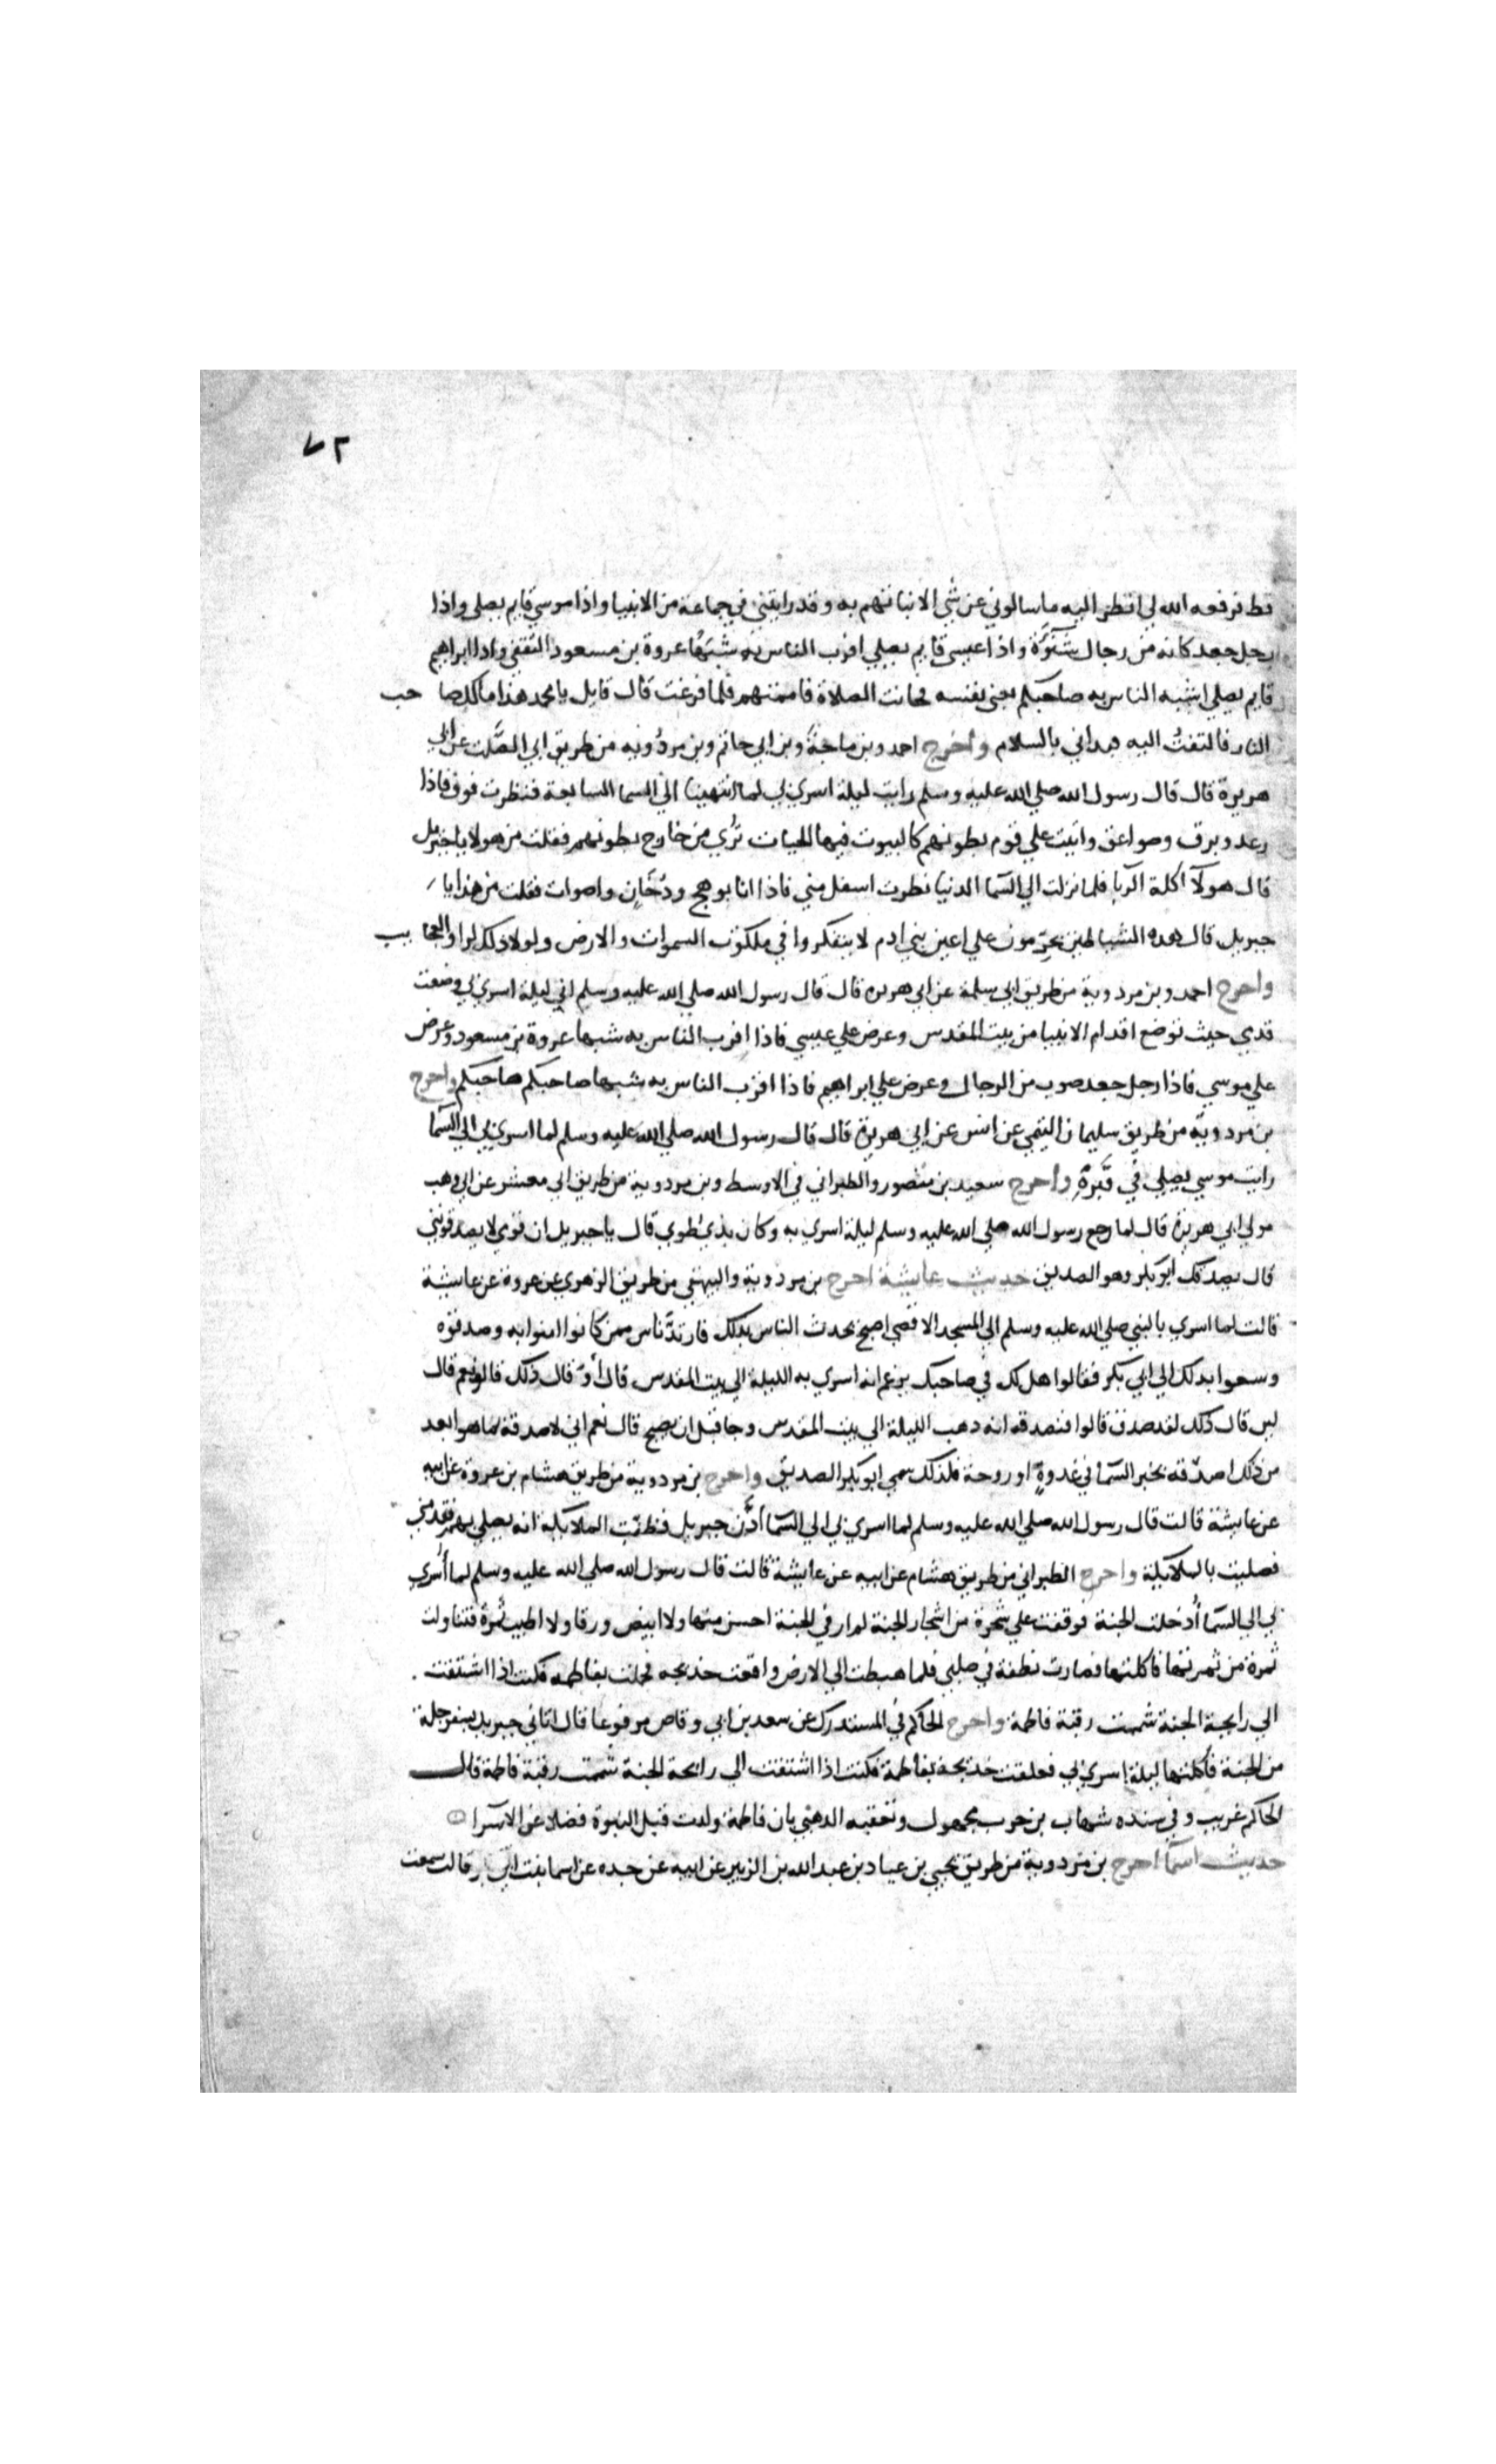 ٧٢
قط فرفعه الله لي انظر اليه ما سالوني عن شي الا نباتهم به وقد رايتني في جماعة من الانبيا واذا موسي قايم يصلي واذا
رجل جعد كانه من رجال شنوة واذا عيسي قايم يصلي اقرب الناس به شبها عروة بن مسعود الثقفي واذا ابراهيم
قايم يصلي اشبه الناس به صاحبكم يعني نفسه فحانت الصلاة فاممتهم فلما فرغت قال قايل يا محمد هذا مالك صاحب
النار فالتفت اليه فبداني بالسلام واخرج احمد وبن ماجة وبن ابي حاتم وبن مردويه من طريق ابي الصلت عن ابي
هريرة قال قال رسول الله صلي الله عليه وسلم رايت ليلة اسري بي لما انتهينا الي السما السابعة فنظرت فوق فاذا
رعد وبرق وصواعق واتيت علي قوم بطونهم كالبيوت فيها الحيات تري من خارج بطونهم فقلت من هولا يا جبريل
قال هولآ اكلة الربا فلما نزلت الي السما الدنيا نظرت اسفل مني فاذا انا بوهج ودخان واصوات فقلت من هذا يا
جبريل قال هده الشياطين يحرمون علي اعين بني ادم لا يتفكروا في ملكوت السموات والارض ولولا ذلك لراوا العجايب
واخرج احمد وبن مردوية من طريق ابي سلمة عن ابي هريره قال قال رسول الله صلي الله عليه وسلم اني ليلة اسري بي وضعت
قدمي حيث توضع اقدام الانبيا من بيت المقدس وعرض علي عيسي فاذا اقرب الناس به شبها عروة بن مسعود وعرض
علي موسي فاذا رجل جعد صرب من الرجال وعرض علي ابراهيم فاذا اقرب الناس به شبها صاحبكم صاحبكم واخرج
بن مردوية من طريق سليمان التيمي عن انس عن ابي هريرة قال قال رسول الله صلي الله عليه وسلم لما اسري بي الي السما
رايت موسي يصلي في قبره واخرج سعيد بن منصور والطبراني في الاوسط وبن مردوية من طريق ابي معشر عن ابي وهب
مولي ابي هريرة قال لما رجع رسول الله صلي الله عليه وسلم ليلة اسري به وكان بذي طوي قال يا جبريل ان قومي لا يصدقونني
قال يصدقك ابو بكر وهو الصديق حديث عايشة اخرج بن مردوية والبيهقي من طريق الزهري عن عروة عن عايشة
قالت لما اسري بالنبي صلي الله عليه وسلم الي المسجد الاقصي اصبح يحدث الناس بذلك فارتد ناس ممن كانوا امنوا به وصدقوه
وسعوا بدلك الي ابي بكر فقالوا هل لك في صاحبك يزعم انه اسري به الليلة الي بيت المقدس قال او قال ذلك قالوا نعم قال
لين قال ذلك لقد صدق قالوا فتصدقه انه دهب الليلة الي بيت المقدس وجا قبل ان يصبح قال نعم اني لاصدقه بما هو ابعد
من ذلك اصدقه بخبر السما في غدوة او روحة فلذلك سمي ابو بكر الصديق واخرج بن مردوية من طريق هشام بن عروة عن ابيه
عن عايشة قالت قال رسول الله صلي الله عليه وسلم لما اسري بي الي السما اذن جبريل فظنت الملايكة انه يصلي بهم فقدمني
فصليت بالملايكة واخرج الطبراني من طريق هشام عن ابيه عن عايشة قالت قال رسول الله صلي الله عليه وسلم لما اسري
بي الي السما ادخلت الجنة فوقفت علي شجرة من اشجار الجنة لم ار في الجنة احسن منها ولا ابيض ورقا ولا اطيب ثمرة فتناولت
ثمرة من ثمرتها فاكلتها فصارت نطفة في صلبي فلما هبطت الي الارض واقعت خديجه فحملت بفاطمه فكنت اذا اشتقت
الي رايحة الجنة شممت رقبة فاطمة واخرج الحاكم في المستدرك عن سعد بن ابي وقاص مرفوعا قال اتاني جبريل بسفرجلة
من الجنة فاكلتها ليلة اسري بي فعلقت خديجة بفاطمة فكنت اذا اشتقت الي رائحة الجنة شممت رقبة فاطمة قال
الحاكم غريب وفي سنده شهاب بن حرب مجهول وتعقبه الدهبي بان فاطمة ولدت قبل النبوة فضلا عن الاسرا
حديث اسما اخرج بن مردوية من طريق يحيي بن عباد بن عبد الله بن الزبير عن ابيه عن جده عن اسما بنت ابي بكر قالت سمعت